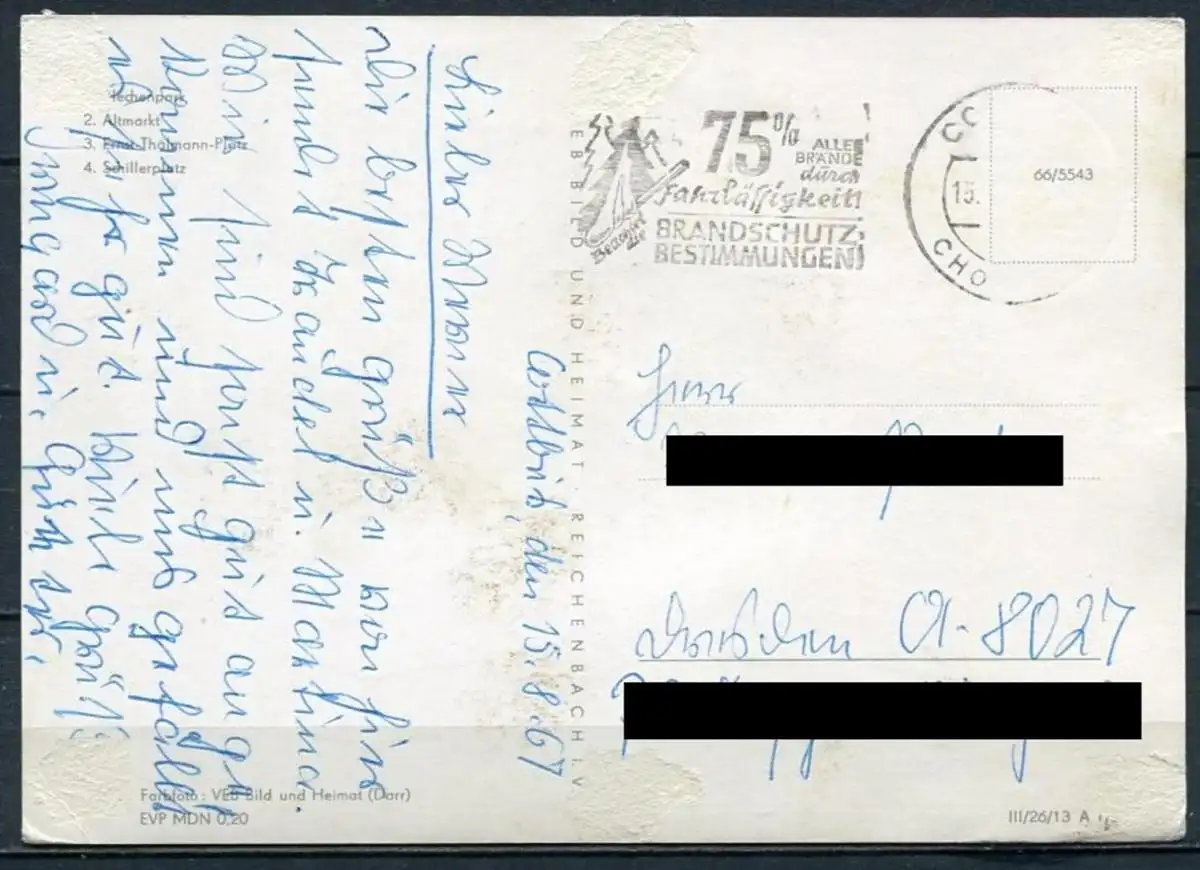 2. Altmarkt
3. Ernst-Thälmann-Platz
4. Schillerplatz
Cottbus, den 15.8.67
Lieber Werner
die besten Grüße von hier
sendet Traudel u. Martina.
Wir sind sonst gut ange-
kommen und uns gefällt
es sehr gut. Viele Grüße
Irmgard u.
Farbfoto: VEB Bild und Heimat (Darr)
EVP MDN 0,20
VEB BILD UND HEIMAT · REICHENBACH I. V
75% ALLER
BRÄNDE
durch
Fahrlässigkeit!
Beachtet die
BRANDSCHUTZ-
BESTIMMUNGEN!
CO
15.
CHO
66/5543
Herrn
Dresden A-8027
III/26/13 A